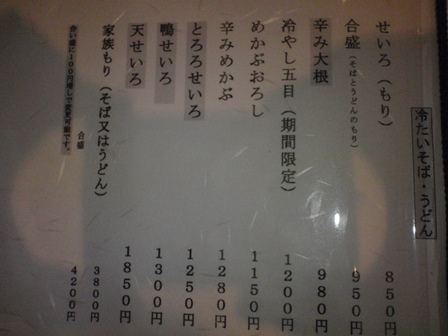 冷たいそば・うどん
せいろ（もり） ８５０円
合盛（そばとうどんのもり） ９５０円
辛み大根 ９８０円
冷やし五目（期間限定） １２００円
めかぶおろし １１５０円
辛みめかぶ １２８０円
とろろせいろ １２５０円
鴨せいろ １３００円
天せいろ １８５０円
家族もり（そば又はうどん） ３８００円
合盛 ４２００円
合い盛に１００円増しで変更可能です。